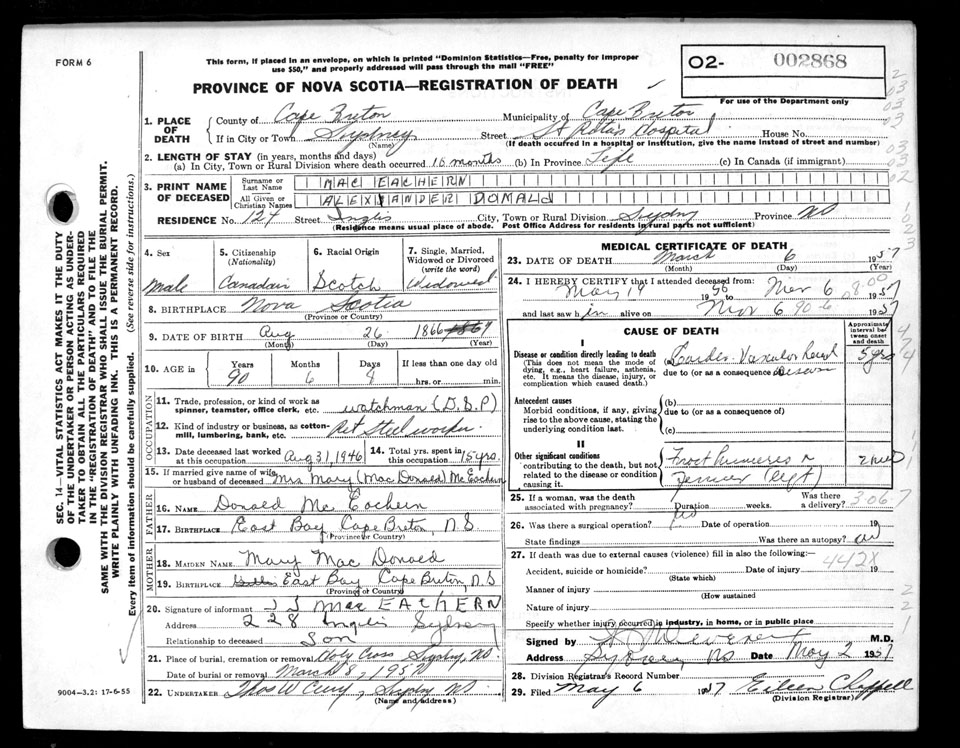 FORM 6
This form, if placed in an envelope, on which is printed "Dominion Statistics—Free, penalty for improper
use $50," and properly addressed will pass through the mail "FREE"
O2- 002868
PROVINCE OF NOVA SCOTIA—REGISTRATION OF DEATH
For use of the Department only
1. PLACE OF DEATH
County of Cape Breton Municipality of Cape Breton
If in City or Town Sydney Street St Rita's Hospital House No.
(Name) (If death occurred in a hospital or institution, give the name instead of street and number)
2. LENGTH OF STAY (in years, months and days)
(a) In City, Town or Rural Division where death occurred 16 months (b) In Province Life (c) In Canada (if immigrant)
3. PRINT NAME OF DECEASED
Surname or Last Name MAC EACHERN
All Given or Christian Names ALEXANDER DONALD
RESIDENCE No. 124 Street Inglis City, Town or Rural Division Sydney Province NS
(Residence means usual place of abode. Post Office Address for residents in rural parts not sufficient)
SEC. 14—VITAL STATISTICS ACT MAKES IT THE DUTY
OF THE UNDERTAKER OR PERSON ACTING AS UNDER-
TAKER TO OBTAIN ALL THE PARTICULARS REQUIRED
IN THE "REGISTRATION OF DEATH" AND TO FILE THE
SAME WITH THE DIVISION REGISTRAR WHO SHALL ISSUE THE BURIAL PERMIT.
WRITE PLAINLY WITH UNFADING INK. THIS IS A PERMANENT RECORD.
Every item of information should be carefully supplied. (See reverse side for instructions.)
4. Sex
Male
5. Citizenship
(Nationality)
Canadian
6. Racial Origin
Scotch
7. Single, Married,
Widowed or Divorced
(write the word)
Widowed
8. BIRTHPLACE Nova Scotia
(Province or Country)
9. DATE OF BIRTH Aug 26 1866 1867
(Month) (Day) (Year)
10. AGE in Years Months Days If less than one day old
90 6 8 hrs. or min.
OCCUPATION
11. Trade, profession, or kind of work as
spinner, teamster, office clerk, etc. watchman (D.S.P)
12. Kind of industry or business, as cotton-
mill, lumbering, bank, etc. Ret Steelworker
13. Date deceased last worked
at this occupation Aug 31, 1946
14. Total yrs. spent in
this occupation 15 yrs.
15. If married give name of wife
or husband of deceased Mrs Mary (Mac Donald) Mc Eachern
FATHER
16. NAME Donald Mc Eachern
17. BIRTHPLACE East Bay Cape Breton, N.S
(Province or Country)
MOTHER
18. MAIDEN NAME Mary Mac Donald
19. BIRTHPLACE East Bay Cape Breton, N.S
(Province or Country)
20. Signature of informant Mac EACHERN
Address 228 Inglis Sydney
Relationship to deceased Son
21. Place of burial, cremation or removal Holy Cross Sydney, NS
Date of burial or removal March 8, 1957
22. UNDERTAKER Thos W Curry, Sydney NS
(Name and address)
9004—3.2: 17-6-55
MEDICAL CERTIFICATE OF DEATH
23. DATE OF DEATH March 6 1957
(Month) (Day) (Year)
24. I HEREBY CERTIFY that I attended deceased from:
May 19 1956 to Mar 6 1957
and last saw him alive on Mar 6 1957
CAUSE OF DEATH
Approximate interval between onset and death
I
Disease or condition directly leading to death
(This does not mean the mode of
dying, e.g., heart failure, asthenia,
etc. It means the disease, injury, or
complication which caused death.)
Cardio-Vascular Renal 5 yrs
due to (or as a consequence of) Disease
Antecedent causes
Morbid conditions, if any, giving
rise to the above cause, stating the
underlying condition last.
(b)
due to (or as a consequence of)
(c)
II
Other significant conditions
contributing to the death, but not
related to the disease or condition
causing it.
Femur (left)
25. If a woman, was the death
associated with pregnancy? Duration weeks. Was there a delivery?
3067
26. Was there a surgical operation? Date of operation 19
State findings Was there an autopsy?
27. If death was due to external causes (violence) fill in also the following:—
442X
Accident, suicide or homicide? Date of injury 19
(State which)
Manner of injury
(How sustained
Nature of injury
Specify whether injury occurred in industry, in home, or in public place
Signed by M.D.
Address Sydney NS Date May 2 1957
28. Division Registrar's Record Number
29. Filed May 6 1957 Eileen Chappell
(Division Registrar)